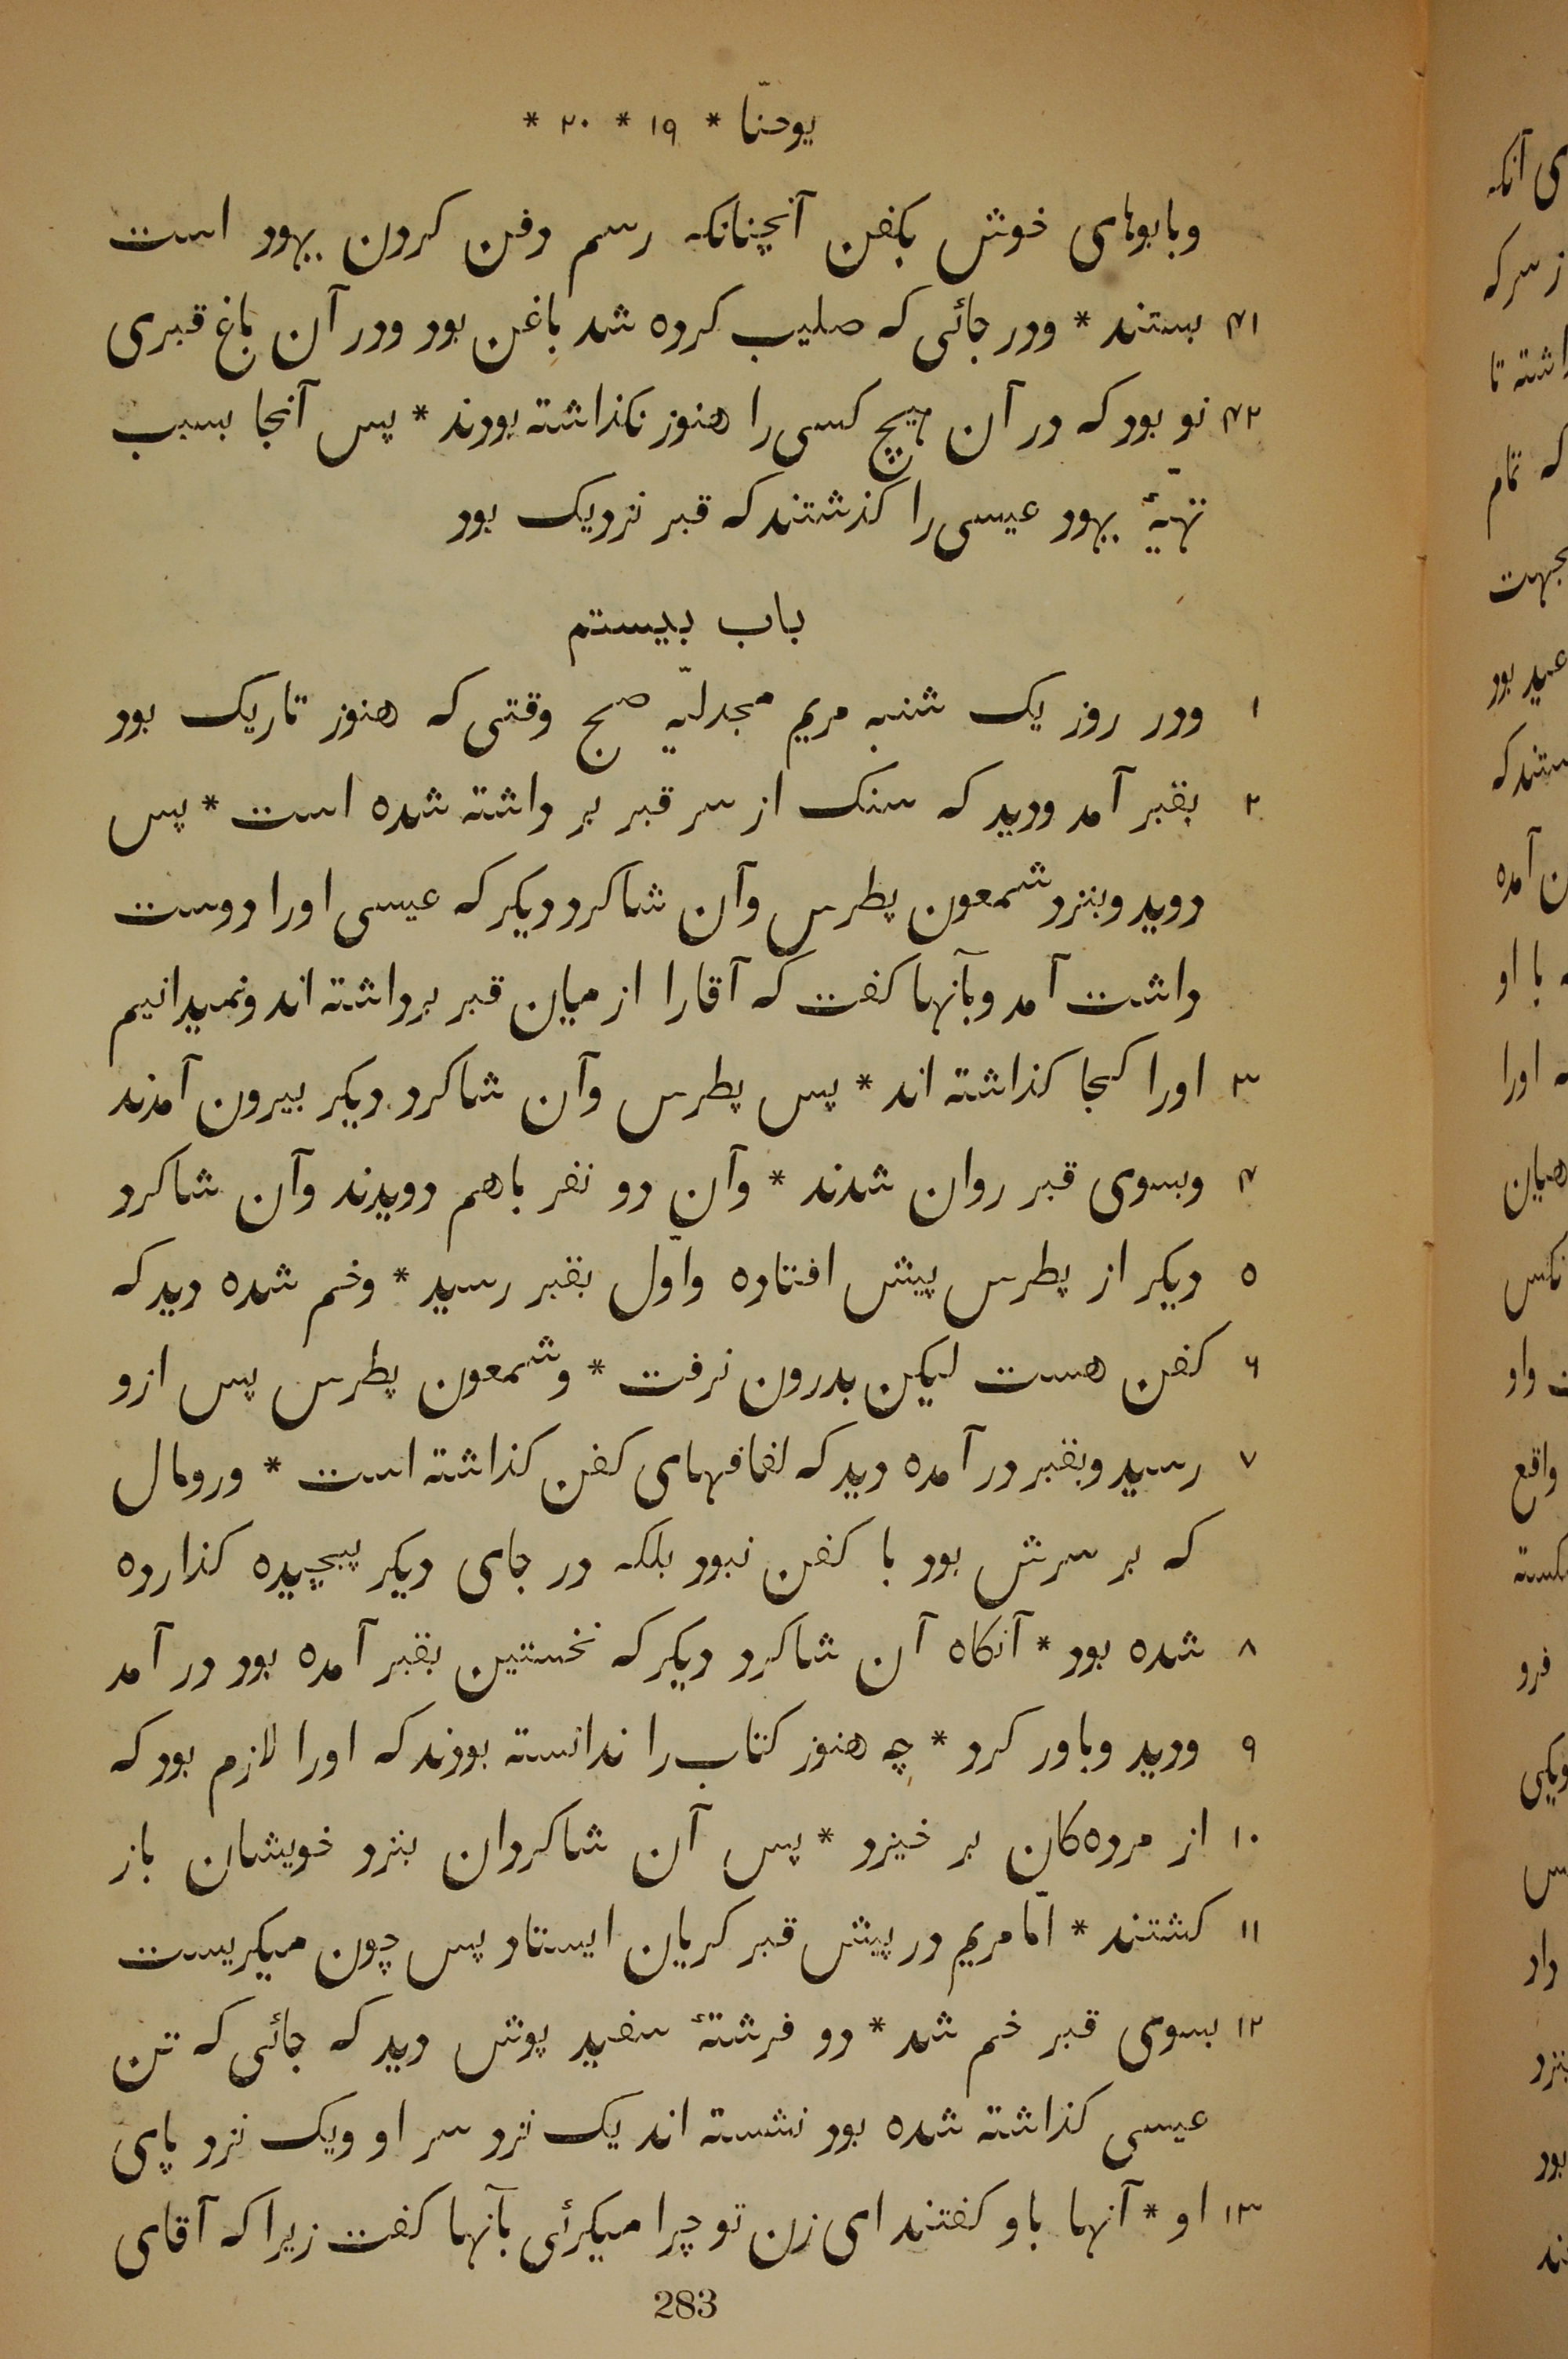 یوحنّا * ۱۹ * ۲۰ *
وبابوهای خوش بکفن آنچنانکه رسم دفن کردن یهود است
۴۱ بستند * ودر جائی که صلیب کرده شد باغی بود ودر آن باغ قبری
۴۲ نو بود که در آن هیچ کسی را هنوز نکذاشته بودند * پس آنجا بسبب
تهیّهٔ یهود عیسی را کذشتند که قبر نزدیک بود
باب بیستم
۱ ودر روز یک شنبه مریم مجدلیّه صبح وقتی که هنوز تاریک بود
۲ بقبر آمد ودید که سنک از سر قبر بر داشته شده است * پس
دوید وبنزد شمعون پطرس وآن شاکرد دیکر که عیسی اورا دوست
داشت آمد وبآنها کفت که آقارا از میان قبر برداشته اند ونمیدانیم
۳ اورا کجا کذاشته اند * پس پطرس وآن شاکرد دیکر بیرون آمدند
۴ وبسوی قبر روان شدند * وآن دو نفر باهم دویدند وآن شاکرد
۵ دیکر از پطرس پیش افتاده واوّل بقبر رسید * وخم شده دید که
۶ کفن هست لیکن بدرون نرفت * وشمعون پطرس پس ازو
۷ رسید وبقبر در آمده دید که لفافهای کفن کذاشته است * ورومال
که بر سرش بود با کفن نبود بلکه در جای دیکر پیچیده کذارده
۸ شده بود * آنکاه آن شاکرد دیکر که نخستین بقبر آمده بود در آمد
۹ ودید وباور کرد * چه هنوز کتاب را ندانسته بودند که اورا لازم بود که
۱۰ از مرده‌کان بر خیزد * پس آن شاکردان بنزد خویشان باز
۱۱ کشتند * امّا مریم در پیش قبر کریان ایستاد پس چون میکریست
۱۲ بسوی قبر خم شد * دو فرشتهٔ سفید پوش دید که جائی که تن
عیسی کذاشته شده بود نشسته اند یک نزد سر او ویک نزد پای
۱۳ او * آنها باو کفتند ای زن تو چرا میکرئی بآنها کفت زیرا که آقای
283